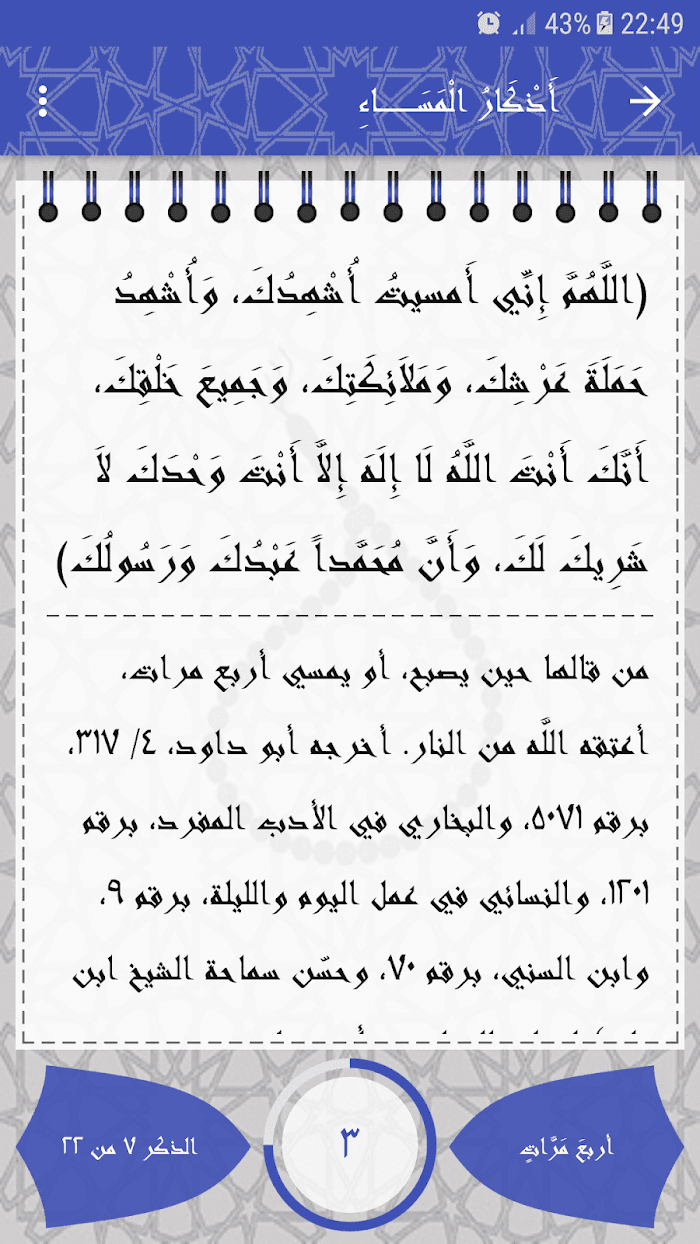 43% 22:49
أَذْكَارُ الْمَسَـــاءِ
(اللَّهُمَّ إِنِّي أَمسيتُ أُشْهِدُكَ، وَأُشْهِدُ
حَمَلَةَ عَرْشِكَ، وَمَلاَئِكَتِكَ، وَجَمِيعَ خَلْقِكَ،
أَنَّكَ أَنْتَ اللَّهُ لَا إِلَهَ إِلاَّ أَنْتَ وَحْدَكَ لاَ
شَرِيكَ لَكَ، وَأَنَّ مُحَمَّداً عَبْدُكَ وَرَسُولُكَ)
من قالها حين يصبح، أو يمسي أربع مرات،
أعتقه اللَّه من النار. أخرجه أبو داود، ٤/ ٣١٧،
برقم ٥٠٧١، والبخاري في الأدب المفرد، برقم
١٢٠١، والنسائي في عمل اليوم والليلة، برقم ٩،
وابن السني، برقم ٧٠، وحسّن سماحة الشيخ ابن
أربعَ مَرَّاتٍ
٣
الذكر ٧ من ٢٢